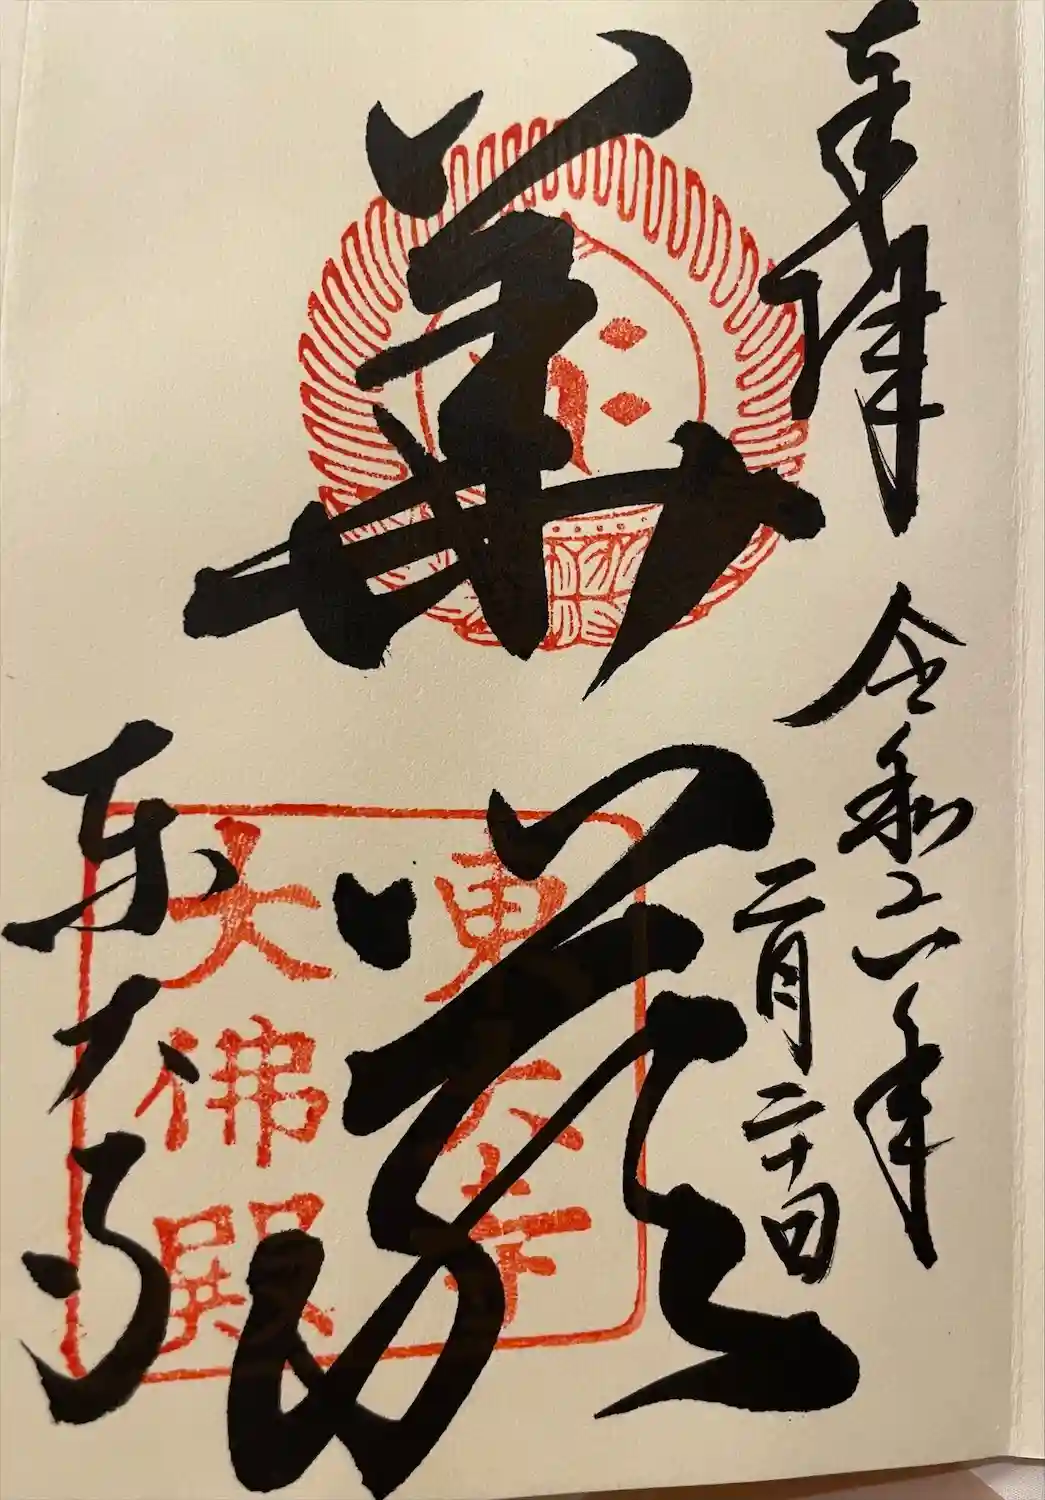 奉拝
令和六年
二月二十日
華厳
東大寺
東大寺
大佛殿